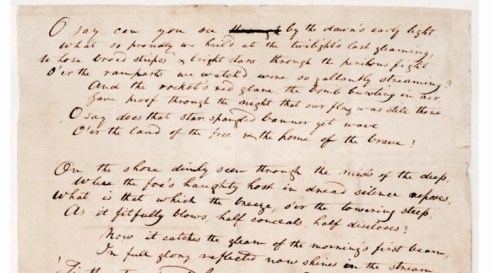 O say can you see by the dawn's early light
What so proudly we hail'd at the twilight's last gleaming,
Whose broad stripes & bright stars through the perilous fight
O'er the ramparts we watch'd were so gallantly streaming?
And the rocket's red glare, the bomb bursting in air,
Gave proof through the night that our flag was still there
O say does that star spangled banner yet wave
O'er the land of the free & the home of the brave?
On the shore dimly seen through the mists of the deep,
Where the foe's haughty host in dread silence reposes,
What is that which the breeze, o'er the towering steep,
As it fitfully blows, half conceals, half discloses?
Now it catches the gleam of the morning's first beam,
In full glory reflected now shines in the stream